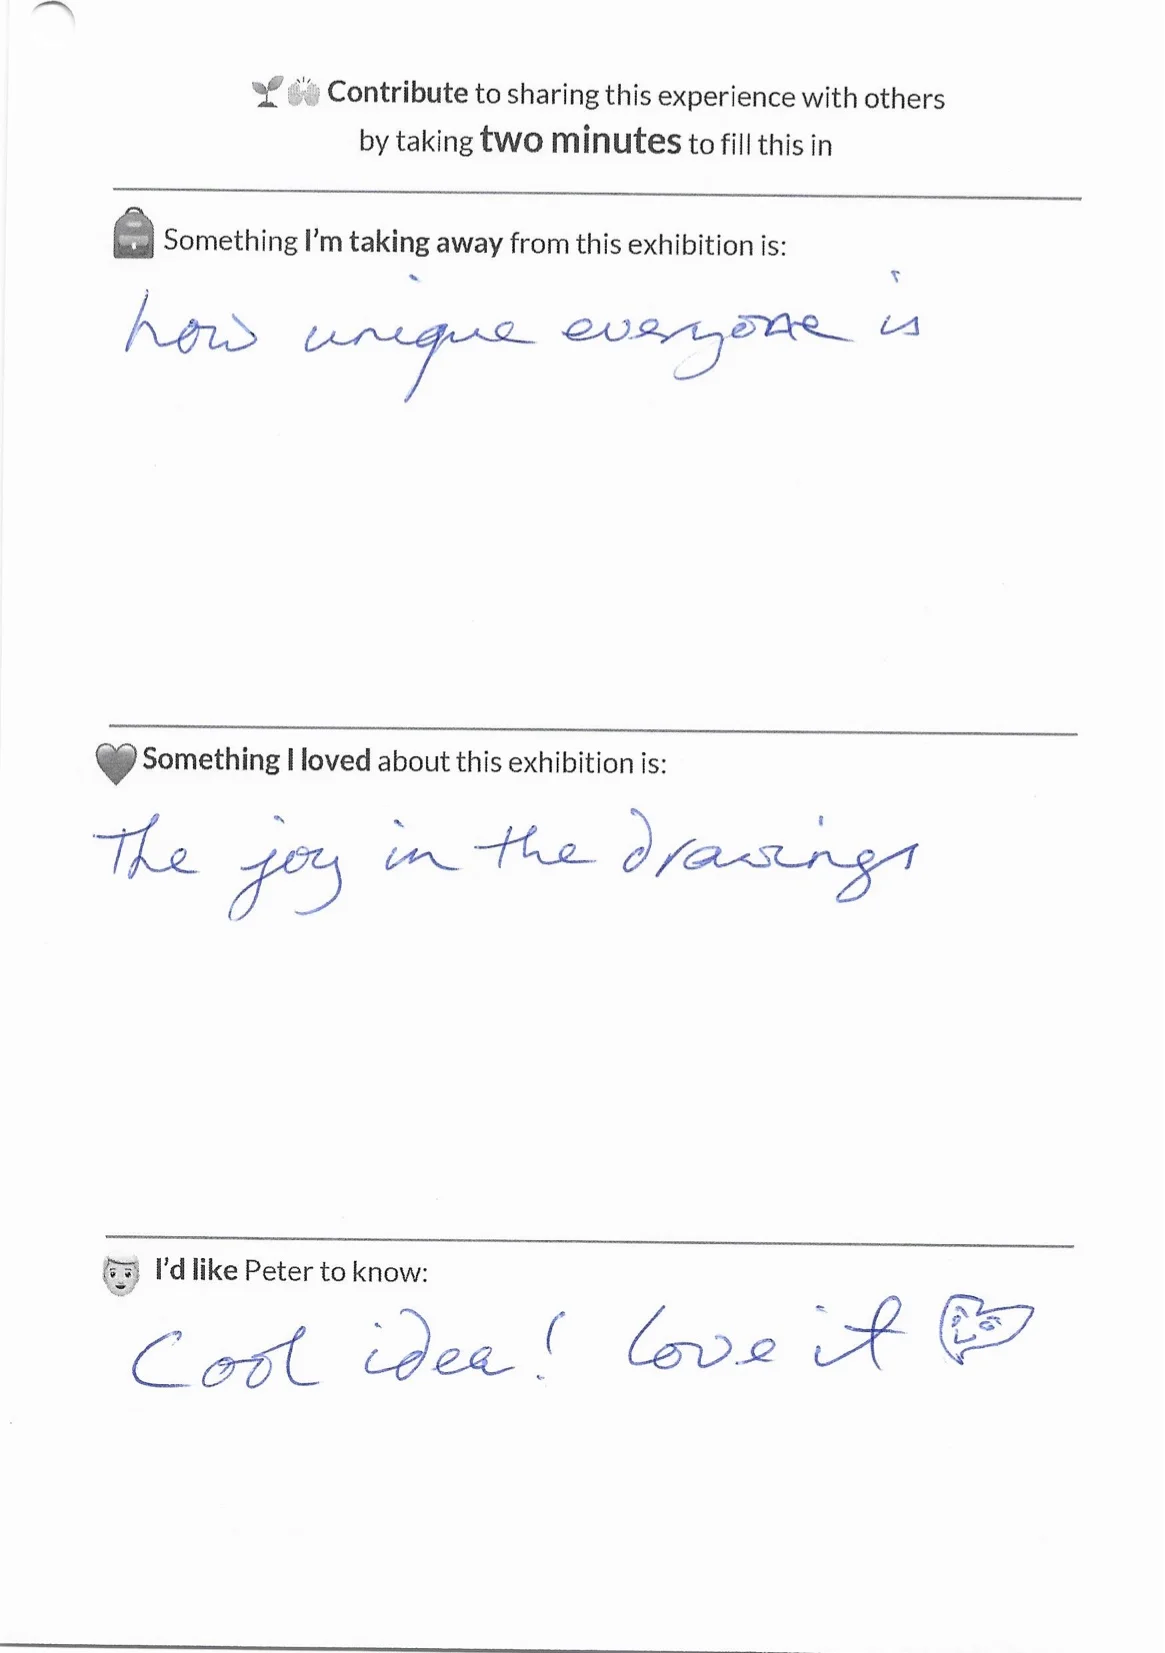 Contribute to sharing this experience with others
by taking two minutes to fill this in
Something I'm taking away from this exhibition is:
how unique everyone is
Something I loved about this exhibition is:
The joy in the drawings
I'd like Peter to know:
Cool idea! Love it